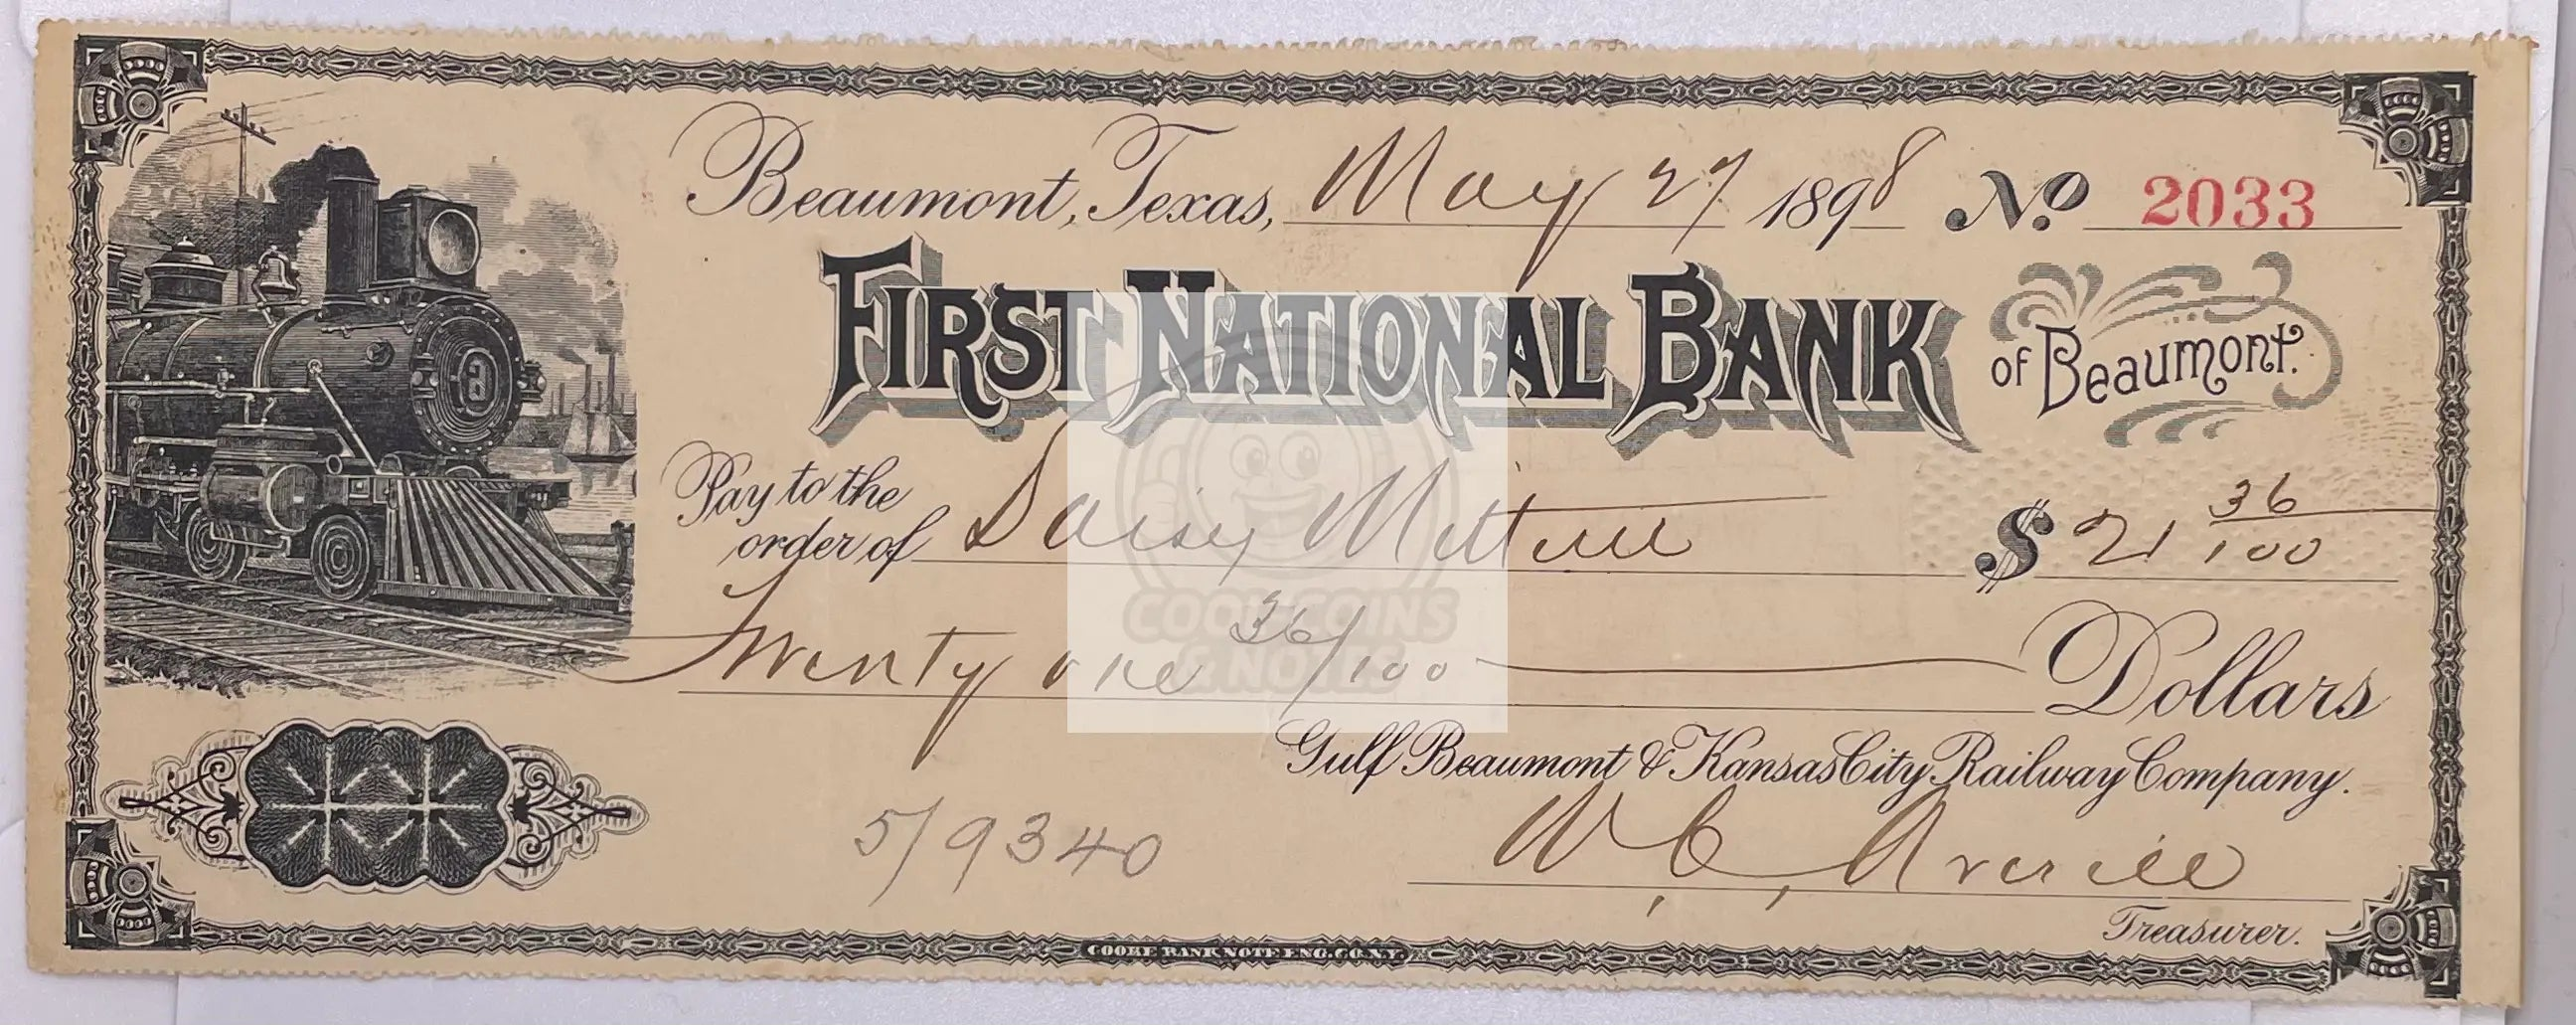 Beaumont, Texas, May 27 1898 No. 2033
FIRST NATIONAL BANK of Beaumont.
Pay to the order of Daisy $ 21 36/100
Twenty one 36/100 Dollars
COOL COINS
& NOTES
Gulf Beaumont & Kansas City Railway Company.
W. C. Averill
5/9340
Treasurer.
COOKE BANK NOTE ENG. CO. N.Y.